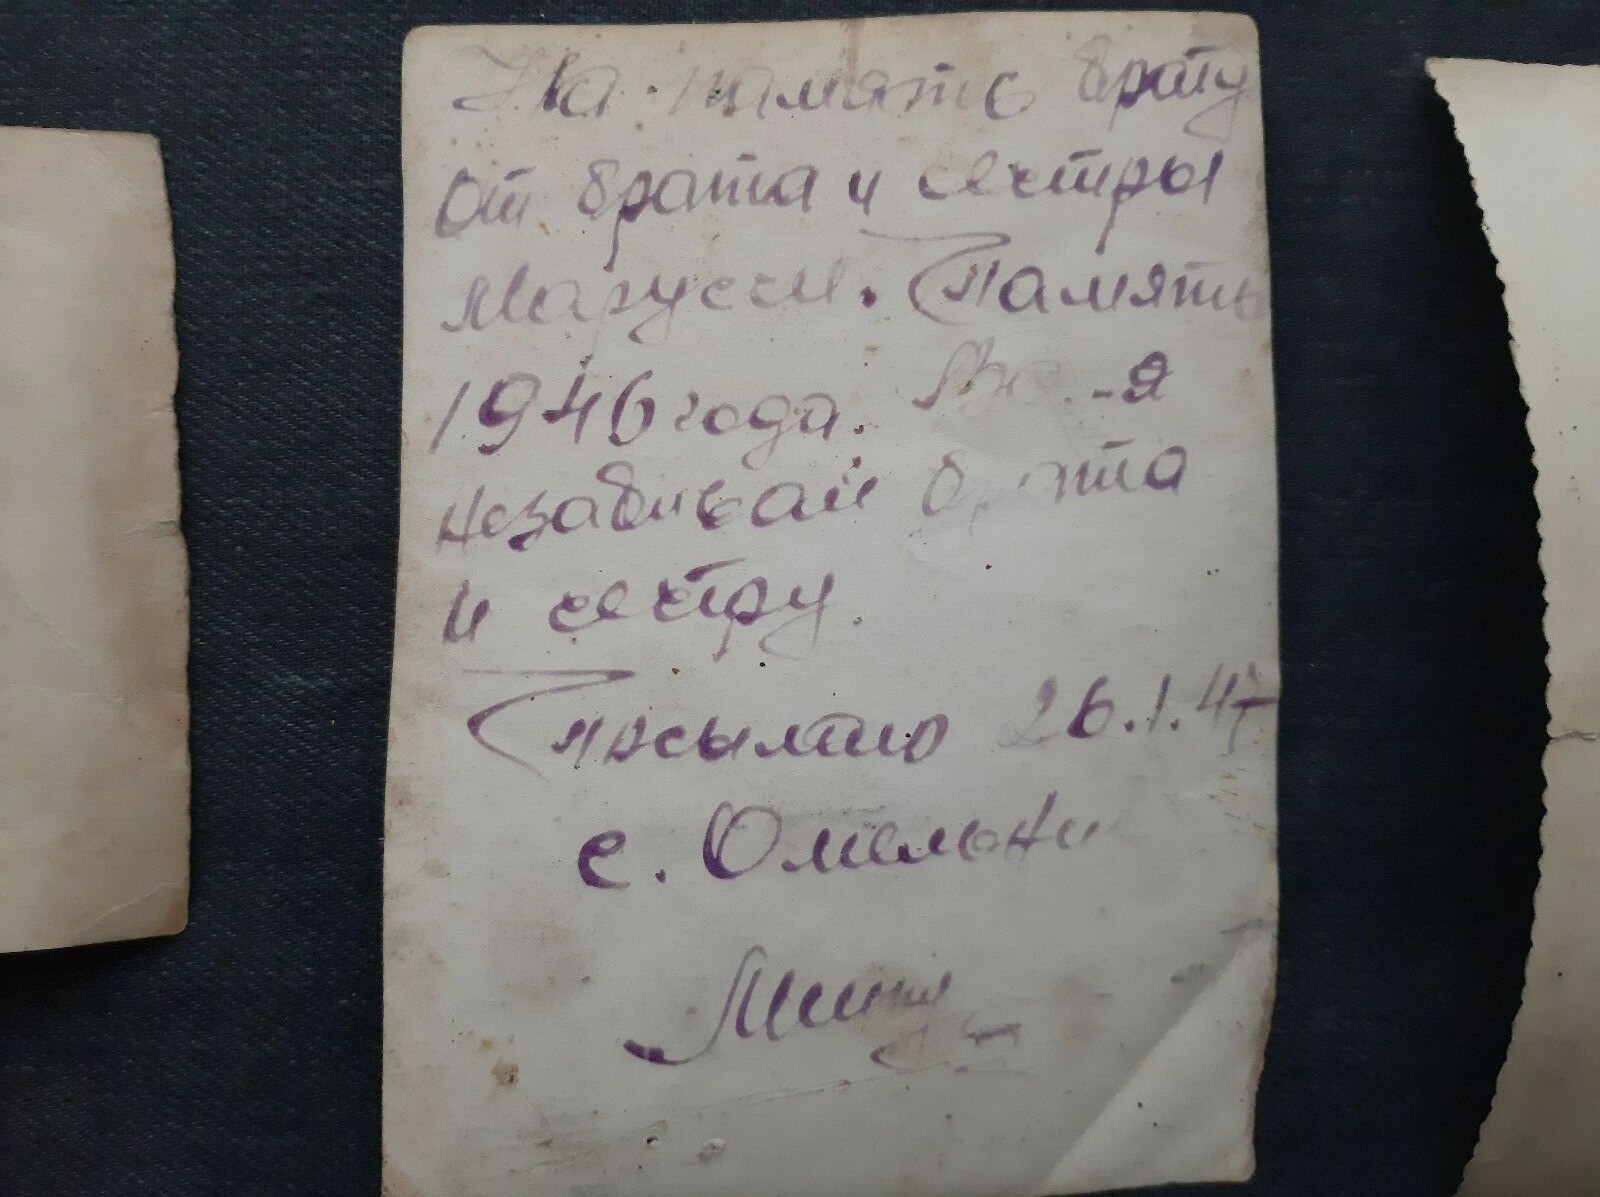 На память брату
от брата и сестры
Марусси. Память
1946 года.
незабивай брата
и сестру.
Посылаю 26.1.47
с. Омельни